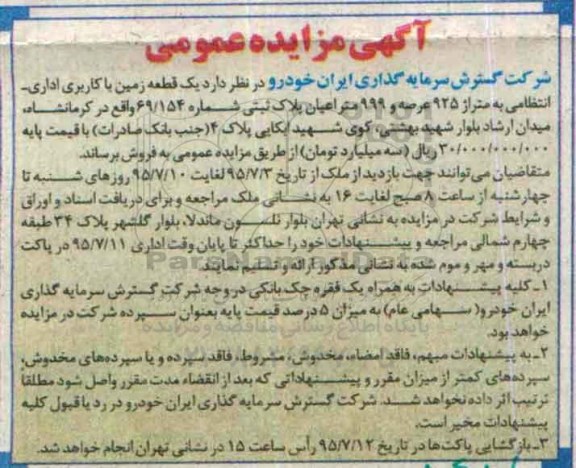 آگهی مزایده عمومی
شرکت گسترش سرمایه گذاری ایران خودرو در نظر دارد یک قطعه زمین با کاربری اداری-
انتظامی به متراژ ۹۲۵ عرصه و ۹۹۹ متر اعیان پلاک ثبتی شماره ۶۹/۱۵۴ واقع در کرمانشاه،
میدان ارشاد بلوار شهید بهشتی، کوی شهید ابکایی پلاک ۴ (جنب بانک صادرات) با قیمت پایه
۳۰/۰۰۰/۰۰۰/۰۰۰ ریال (سه میلیارد تومان) از طریق مزایده عمومی به فروش برساند.
متقاضیان می توانند جهت بازدید از ملک از تاریخ ۹۵/۷/۳ لغایت ۹۵/۷/۱۰ روزهای شنبه تا
چهارشنبه از ساعت ۸ صبح لغایت ۱۶ به نشانی ملک مراجعه و برای دریافت اسناد و اوراق
و شرایط شرکت در مزایده به نشانی تهران بلوار نلسون ماندلا، بلوار گلشهر پلاک ۳۴ طبقه
چهارم شمالی مراجعه و پیشنهادات خود را حداکثر تا پایان وقت اداری ۹۵/۷/۱۱ در پاکت
دربسته و مهر و موم شده به نشانی مذکور ارائه و تسلیم نمایند.
۱- کلیه پیشنهادات به همراه یک فقره چک بانکی در وجه شرکت گسترش سرمایه گذاری
ایران خودرو (سهامی عام) به میزان ۵ درصد قیمت پایه بعنوان سپرده شرکت در مزایده
خواهد بود.
۲- به پیشنهادات مبهم، فاقد امضاء، مخدوش، مشروط، فاقد سپرده و یا سپرده های مخدوش،
سپرده های کمتر از میزان مقرر و پیشنهاداتی که بعد از انقضاء مدت مقرر واصل شود مطلقا
ترتیب اثر داده نخواهد شد. شرکت گسترش سرمایه گذاری ایران خودرو در رد یا قبول کلیه
پیشنهادات مخیر است.
۳- بازگشایی پاکت ها در تاریخ ۹۵/۷/۱۲ رأس ساعت ۱۵ در نشانی تهران انجام خواهد شد.